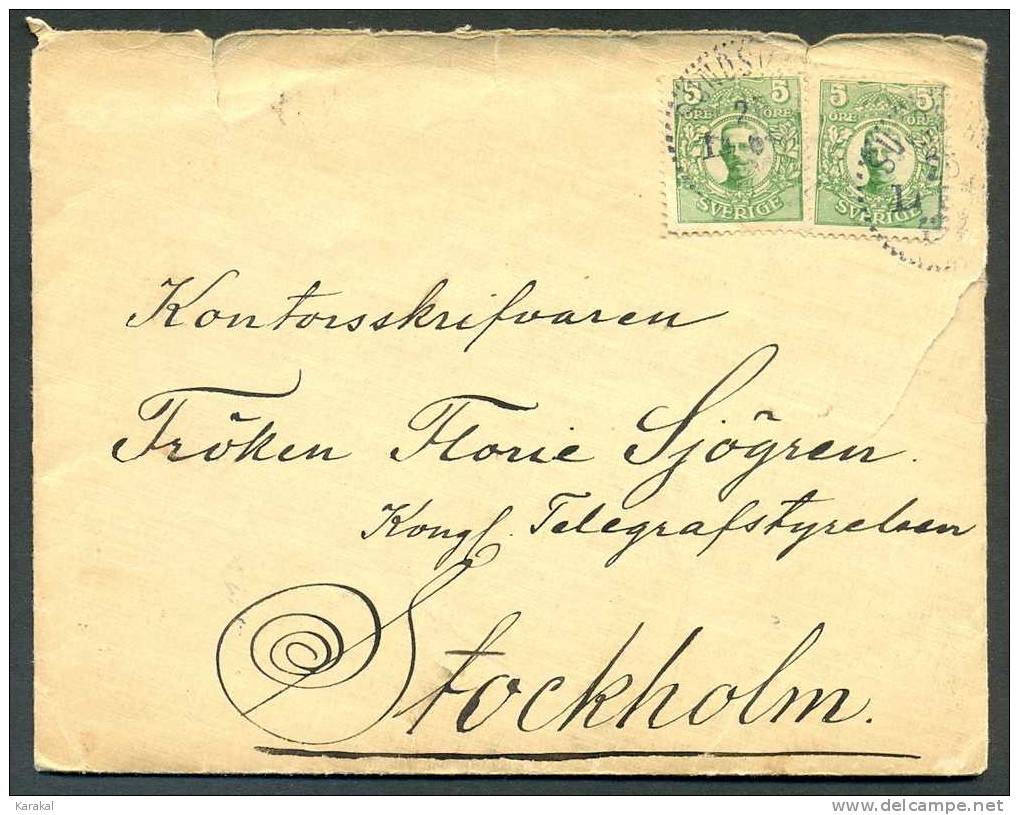 5 5
ÖRE ÖRE
SVERIGE
5 5
ÖRE ÖRE
SVERIGE
Kontorsskrifvaren
Fröken Florie Sjögren.
Kongl. Telegrafstyrelsen
Stockholm.
Karakal
delcampe.net